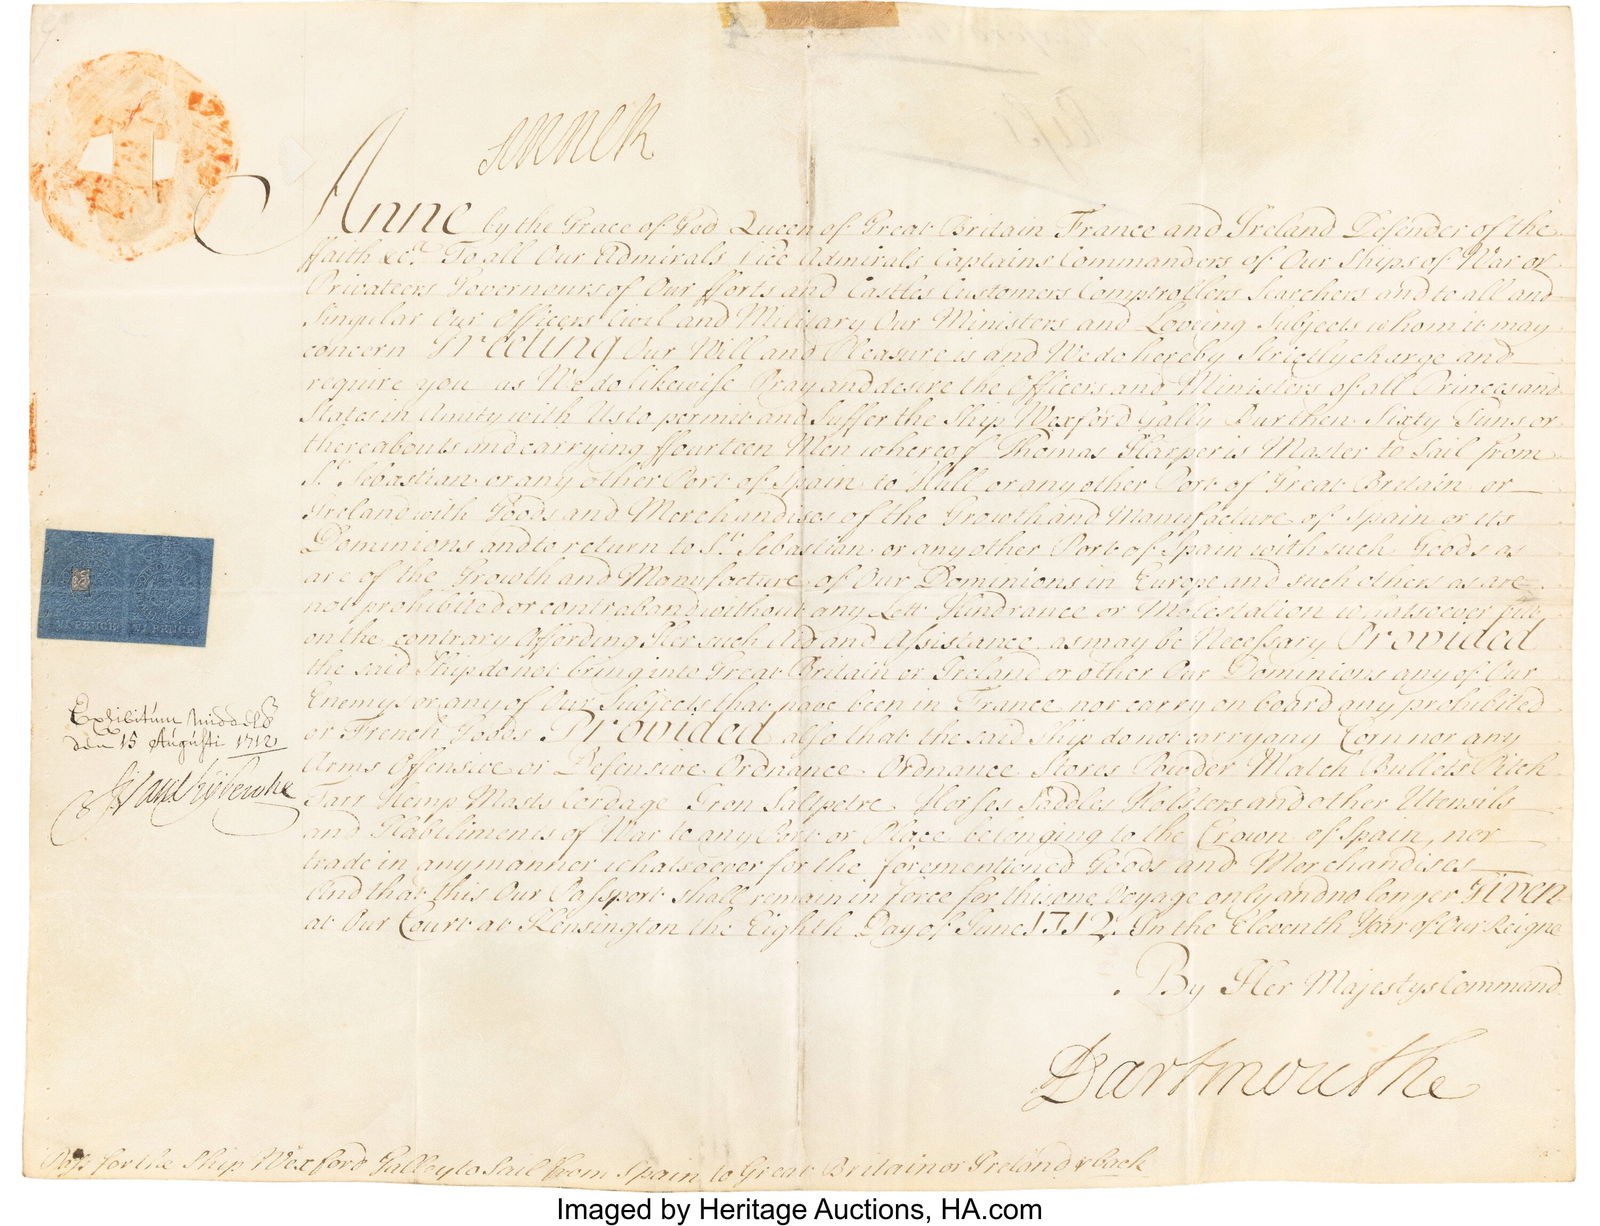 Anne R
Anne by the Grace of God Queen of Great Britain France and Ireland Defender of the
ffaith &c.a To all Our Admirals Vice Admirals Captains Commanders of Our Ships of War or
Privateers Governours of Our fforts and Castles Customers Comptrollers Searchers and to all and
Singular Our Officers Civil and Military Our Ministers and Loveing Subjects whom it may
concern Greeting Our Will and Pleasure is and We do hereby Strictly charge and
require you as We do likewise Pray and desire the Officers and Ministers of all Princes and
States in Amity with Us to permit and Suffer the Ship Wexford Gally Burthen Sixty Tuns or
thereabouts and carrying ffourteen Men whereof Thomas Harper is Master to Sail from
St. Sebastian or any other Port of Spain to Hull or any other Port of Great Britain or
Ireland with Goods and Merchandises of the Growth and Manufacture of Spain or its
Dominions and to return to St. Sebastian or any other Port of Spain with such Goods as
are of the Growth and Manufacture of Our Dominions in Europe and such others as are
not prohibited or contraband without any Lett Hindrance or Molestation whatsoever but
on the contrary Affording Her such Aid and Assistance as may be Necessary Provided
the said Ship do not bring into Great Britain or Ireland or other Our Dominions any of Our
Enemys or any of Our Subjects that have been in France nor carry on board any prohibited
or French Goods Provided also that the said Ship do not carry any Corn nor any
Arms Offensive or Defensive Ordnance Ordnance Stores Powder Match Bullets Pitch
Tarr Hemp Masts Cordage Iron Saltpetre Horses Saddles Holsters and other Utensils
and Habiliments of War to any Port or Place belonging to the Crown of Spain, nor
trade in any manner whatsoever for the forementioned Goods and Merchandises
And that this Our Passport shall remain in force for this one Voyage only and no longer Given
at Our Court at Kensington the Eighth Day of June 1712. In the Eleventh Year of Our Reigne
By Her Majestys Command
Dartmouthe
VI PENCE VI PENCE
Exhibitum
den 15 Augusti 1712
Pass for the Ship Wexford Galley to Sail from Spain to Great Britain or Ireland & back
Imaged by Heritage Auctions, HA.com